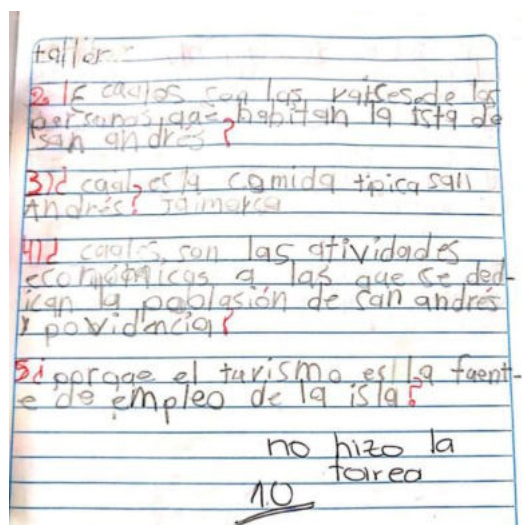 taller
2. ¿ cuales son las raises de las
personas que habitan la isla de
san andres ?
3) ¿ cual, es la comida tipica san
Andrés?
4) ¿ cuales, son las atividades
economicas a las que se ded-
ican la poblasión de san andrés
y povidencia?
5 ¿ porque el turismo es la fuent-
e de empleo de la isla?
no hizo la
tarea
1.0